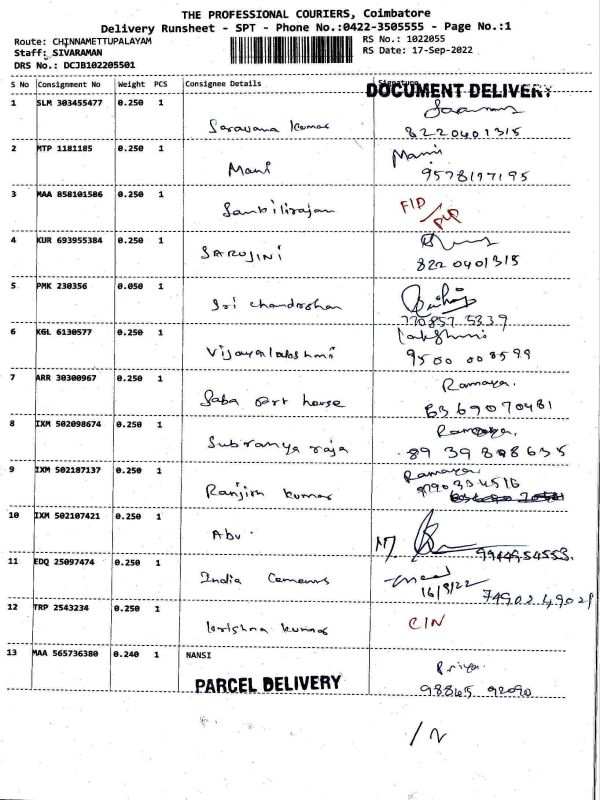 THE PROFESSIONAL COURIERS, Coimbatore
Delivery Runsheet - SPT - Phone No.:0422-3505555 - Page No.:1
Route: CHINNAMETTUPALAYAM
RS No.: 1022055
Staff: SIVARAMAN
RS Date: 17-Sep-2022
DRS No.: DCJB102205501
S No Consignment No Weight PCS Consignee Details Signature
DOCUMENT DELIVERY
1 SLM 303455477 0.250 1
Saravana Kumar 8220401315
2 MTP 1181185 0.250 1 Mani
Mani 9578177195
3 MAA 858101586 0.250 1
4 KUR 693955384 0.250 1
SAROJINI 8220401315
5 PMK 230356 0.050 1
Sri Chandrshan
770857 5339
6 KGL 6130577 0.250 1 Lakshmi
Vijayalakshmi 9500 008599
7 ARR 30300967 0.250 1 Ramaya.
Saba art house 6369070481
8 IXM 502098674 0.250 1
Subramya raja 89 39 898635
9 IXM 502187137 0.250 1 Ramaya
Ranjith Kumar 9790304516
10 IXM 502107421 0.250 1
Abu. M. 9944954553.
11 EDQ 25097474 0.250 1
India Cements 16/9/22
12 TRP 2543234 0.250 1
Krishna Kumar CIN
13 MAA 565736380 0.240 1 NANSI
Priya.
PARCEL DELIVERY 98865 92090